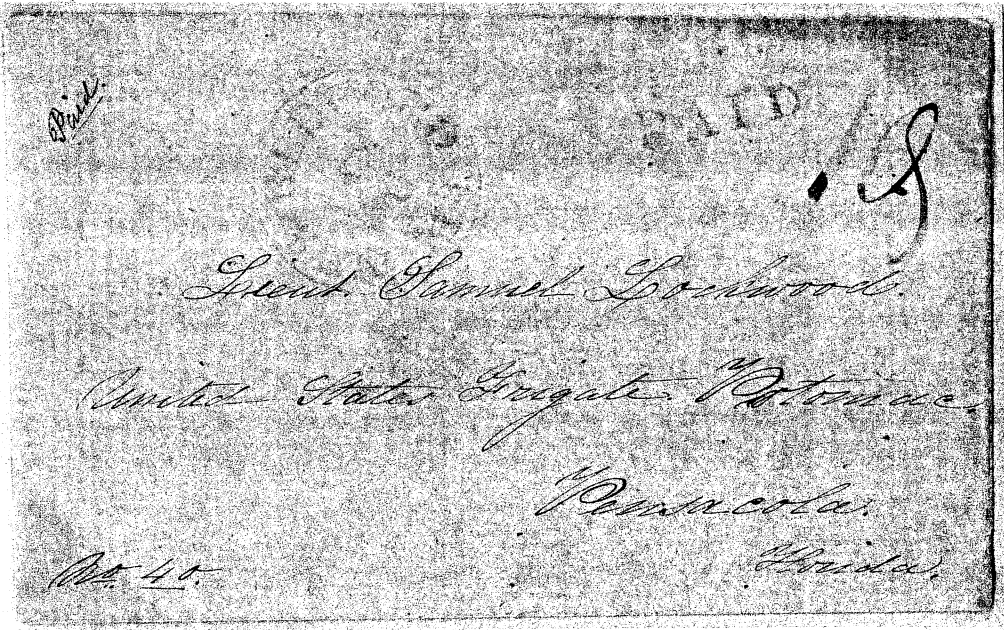 Paid.
PAID
Lieut. Samuel Lockwood.
United States Frigate Potomac.
Pensacola.
Florida.
No. 40.